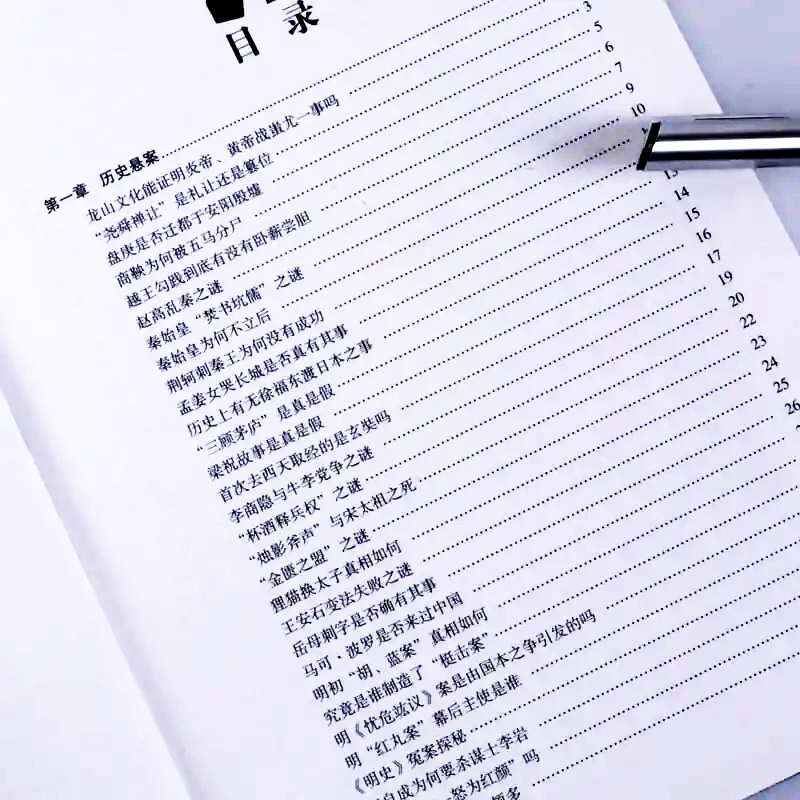 目 录
第一章 历史悬案
龙山文化能证明炎帝、黄帝战蚩尤一事吗 3
“尧舜禅让”是礼让还是篡位 5
盘庚是否迁都于安阳殷墟 6
商鞅为何被五马分尸 7
越王勾践到底有没有卧薪尝胆 9
赵高乱秦之谜 10
秦始皇“焚书坑儒”之谜
秦始皇为何不立后
荆轲刺秦王为何没有成功 13
孟姜女哭长城是否真有其事 14
历史上有无徐福东渡日本之事 15
“三顾茅庐”是真是假 16
梁祝故事是真是假 17
首次去西天取经的是玄奘吗 19
李商隐与牛李党争之谜 20
“杯酒释兵权”之谜 22
“烛影斧声”与宋太祖之死 23
“金匮之盟”之谜 24
狸猫换太子真相如何 25
王安石变法失败之谜 26
岳母刺字是否确有其事
马可·波罗是否来过中国
明初“胡、蓝案”真相如何
究竟是谁制造了“梃击案”
明《忧危竑议》案是由国本之争引发的吗
明“红丸案”幕后主使是谁
《明史》冤案探秘
自成为何要杀谋士李岩
怒为红颜”吗